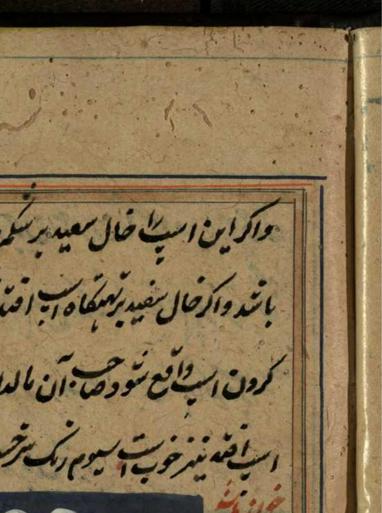 واکر این اسپ را خال سعید بر شکم
باشد واکر خال سفید بر تهیکاه اسپ افتد
کردن اسپ واقع شود صاحب آن مالدا
اسپ افتد نیز خوب است سیوم رنک سرخ